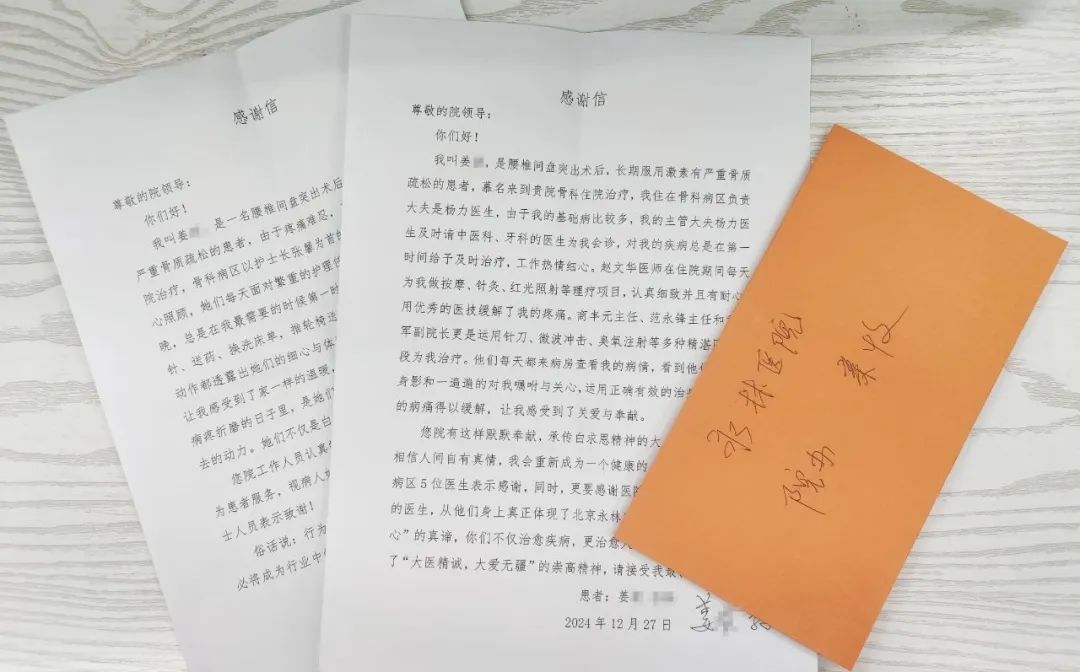 感谢信
尊敬的院领导：
你们好！
我叫姜 ，是一名腰椎间盘突出术后
严重骨质疏松的患者，由于疼痛难忍，
院治疗，骨科病区以护士长张馨为首的
心照顾，她们每天面对繁重的护理
晚，总是在我最需要的时候第一时
针、送药、换洗床单，推轮椅送
动作都透露出她们的细心与体
让我感受到了家一样的温暖，
病疼折磨的日子里，是她们
去的动力。她们不仅是白
您院工作人员认真
为患者服务，视病人
士人员表示致谢！
俗话说：行为
必将成为行业中
感谢信
尊敬的院领导：
你们好！
我叫姜 ，是腰椎间盘突出术后，长期服用激素有严重骨质
疏松的患者，慕名来到贵院骨科住院治疗，我住在骨科病区负责
大夫是杨力医生，由于我的基础病比较多，我的主管大夫杨力医
生及时请中医科、牙科的医生为我会诊，对我的疾病总是在第一
时间给予及时治疗，工作热情细心。赵文华医师在住院期间每天
为我做按摩、针灸、红光照射等理疗项目，认真细致并且有耐心
用优秀的医技缓解了我的疼痛。商半元主任、范永锋主任和
军副院长更是运用针刀、微波冲击、臭氧注射等多种精湛
段为我治疗。他们每天都来病房查看我的病情，看到他
身影和一遍遍的对我嘱咐与关心，运用正确有效的治
的病痛得以缓解，让我感受到了关爱与奉献。
您院有这样默默奉献，承传白求恩精神的大
相信人间自有真情，我会重新成为一个健康的
病区5位医生表示感谢，同时，更要感谢医院
的医生，从他们身上真正体现了北京永林
心”的真谛，你们不仅治愈疾病，更治愈
了“大医精诚，大爱无疆”的崇高精神，请接受我最
患者：姜
2024年12月27日
姜
永林医院
院办
姜